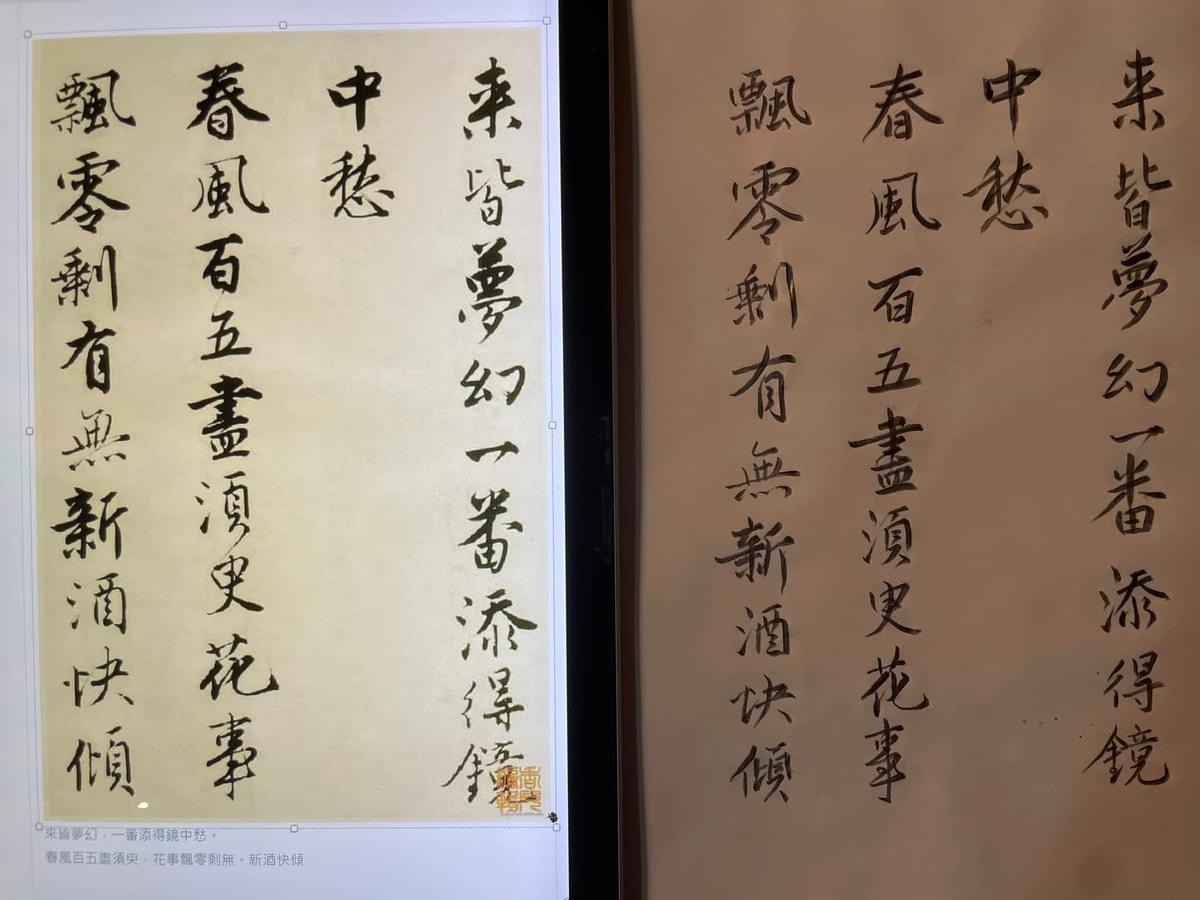 来皆夢幻一番添得鏡
中愁
春風百五盡須臾花事
飄零剩有無新酒快傾
來皆夢幻，一番添得鏡中愁。
春風百五盡須臾，花事飄零剩無。新酒快傾
来皆夢幻一番添得鏡
中愁
春風百五盡須臾花事
飄零剩有無新酒快傾